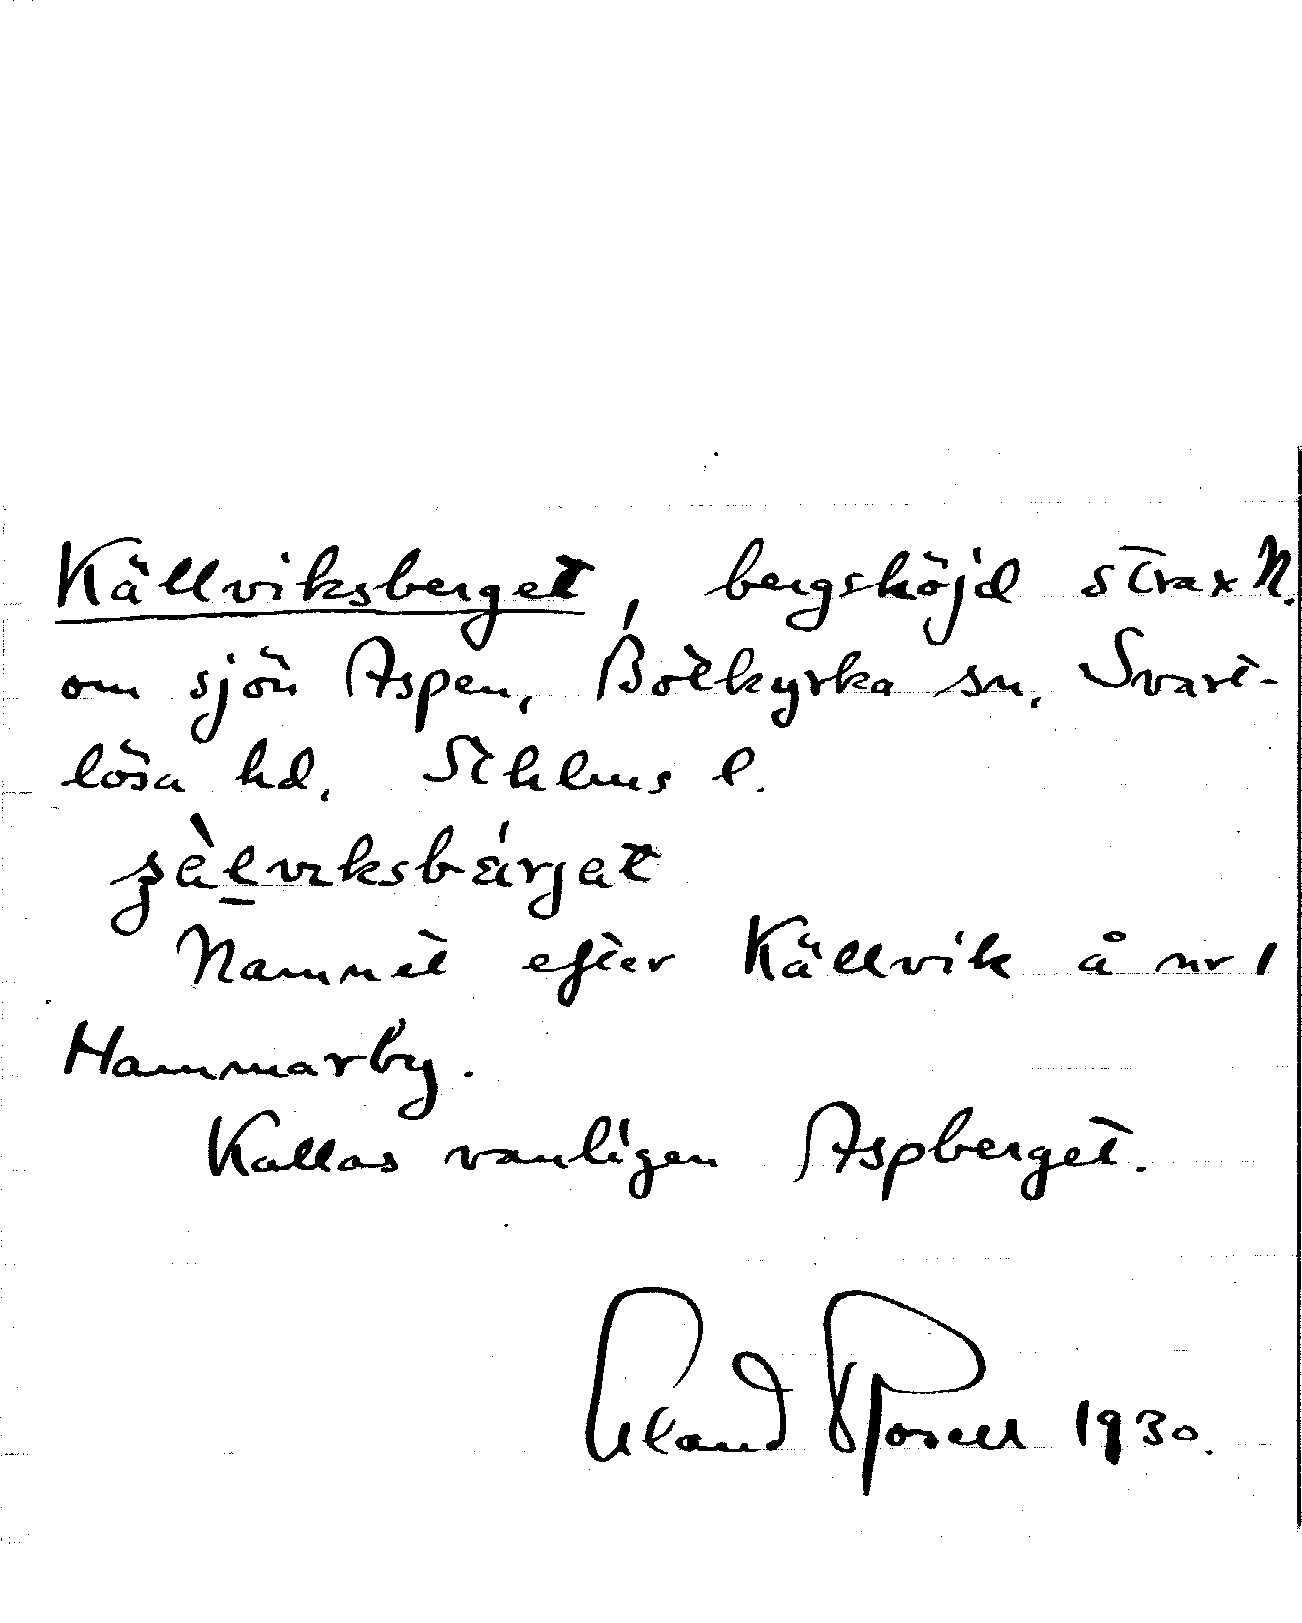 Källviksberget, bergshöjd strax N.
om sjön Aspen, Botkyrka sn, Svart-
lösa hd, Sthlms l.
Namnet efter Källvik å nr 1
Hammarby.
Kallas vanligen Aspberget.
1930.